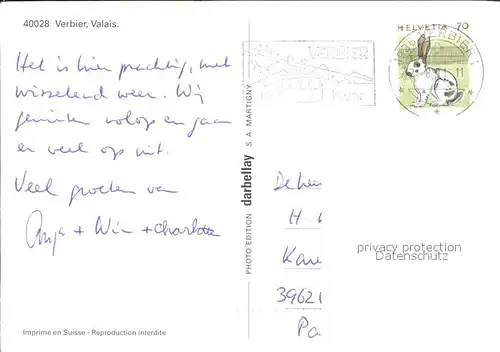 40028 Verbier, Valais.
Het is hier prachtig, met
wisselend weer. Wij
genieten volop en gaan
er veel op uit.
Veel groeten van
Anja + Wim + Charlotte
Imprimé en Suisse - Reproduction interdite
PHOTO EDITION darbellay S. A. MARTIGNY
VERBIER
HELVETIA 70
VERBIER
De hee
H
Kare
3962
Pa
privacy protection
Datenschutz